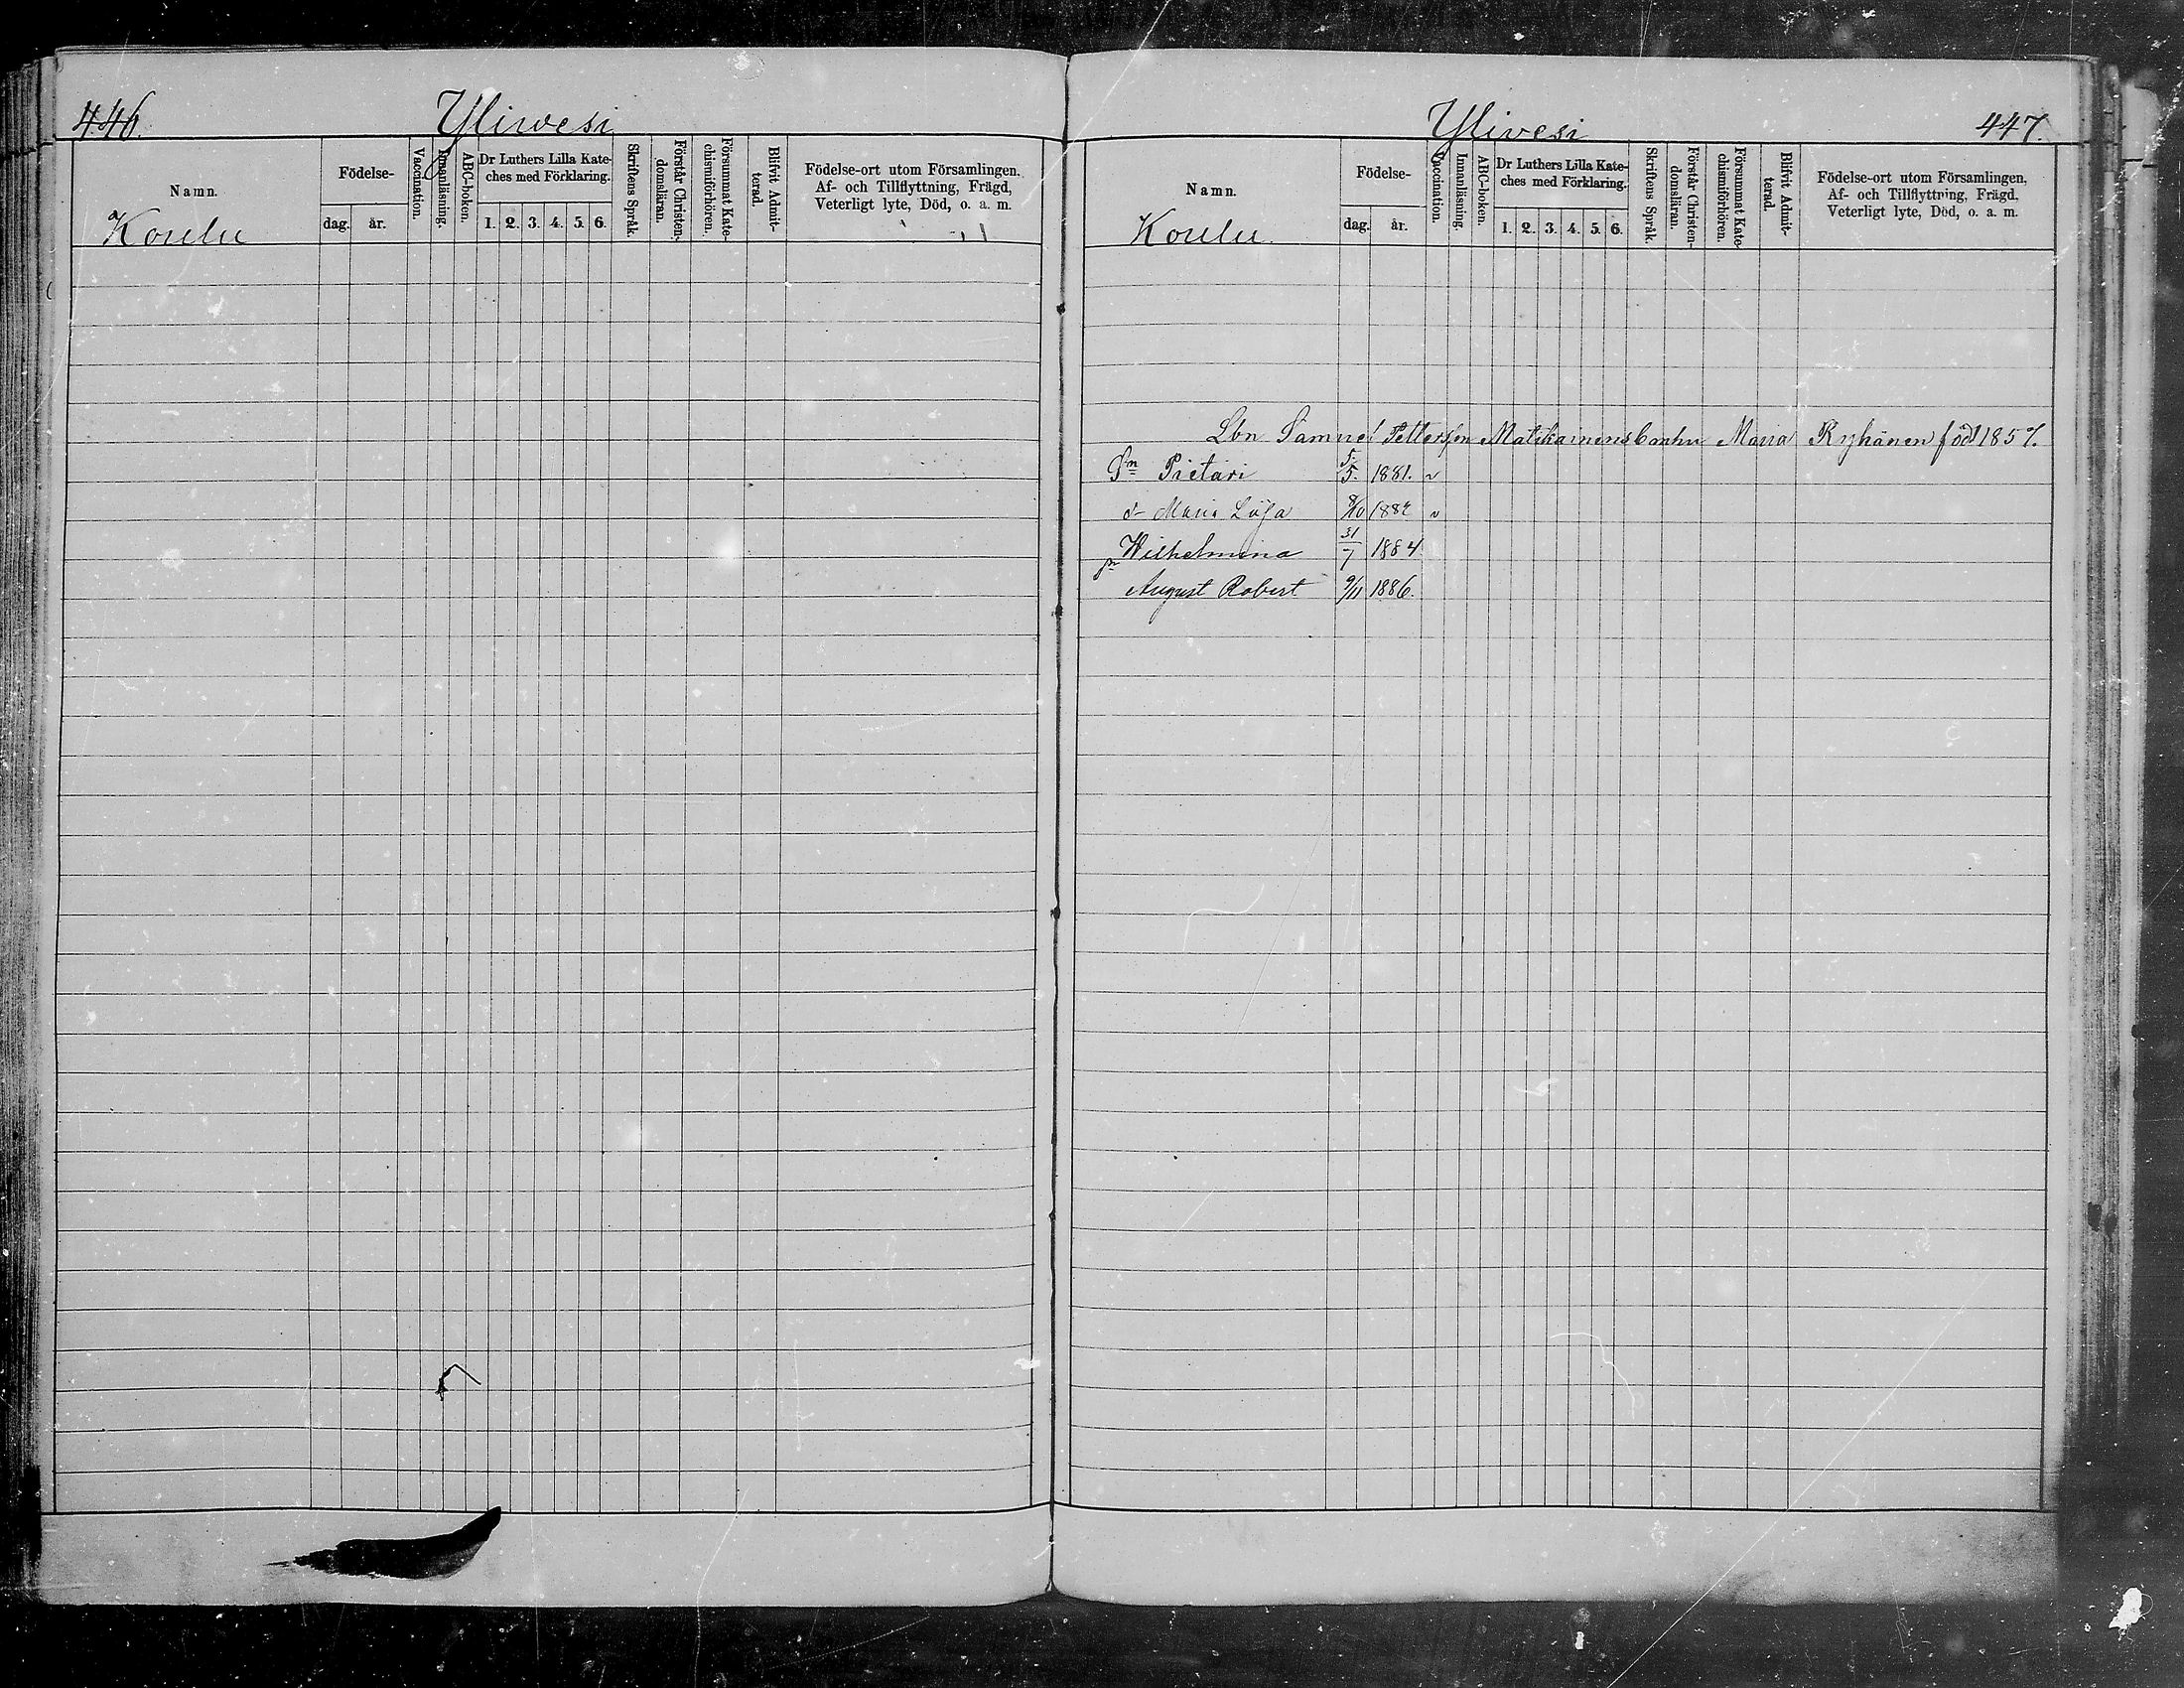 446.
Yliwesi
Namn.
Födelse-
dag.
år.
Vaccination.
Innanläsning.
ABC-boken.
Dr Luthers Lilla Kate-
ches med Förklaring.
1. 2. 3. 4. 5. 6.
Skriftens Språk.
Förstår Christen-
domsläran.
Försummat Kate-
chismiförhören.
Blifvit Admit-
terad.
Födelse-ort utom Församlingen,
Af- och Tillflyttning, Frägd,
Veterligt lyte, Död, o. a. m.
Koulu
Ylivesi
447.
Namn.
Födelse-
dag.
år.
Vaccination.
Innanläsning.
ABC-boken.
Dr Luthers Lilla Kate-
ches med Förklaring.
1. 2. 3. 4. 5. 6.
Skriftens Språk.
Förstår Christen-
domsläran.
Försummat Kate-
chismiförhören.
Blifvit Admit-
terad.
Födelse-ort utom Församlingen,
Af- och Tillflyttning, Frägd,
Veterligt lyte, Död, o. a. m.
Koulu
Lbn Samuel Pettersson Matikainens Maria Ryhänen född
Sn Pietari 5/5. 1881. v
Maria Liisa 8/10 v
Wilhelmina 31/7 1884
sn
August Robert 9/11 1886.